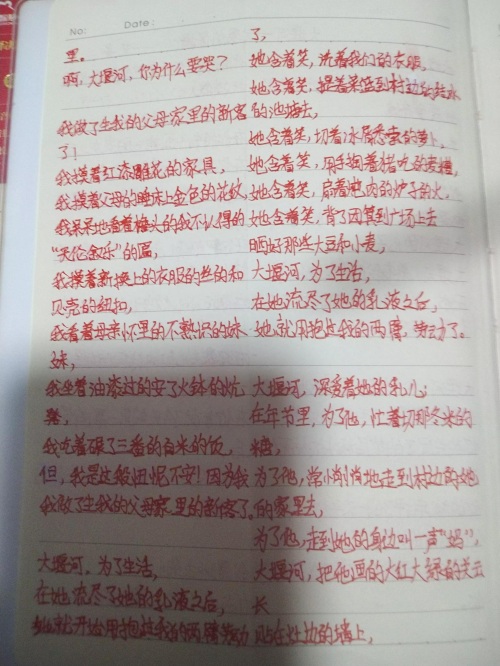 No:
Date:
里。
啊，大堰河，你为什么要哭？
我做了生我的父母家里的新客
了！
我摸着红漆雕花的家具，
我摸着父母的睡床上金色的花纹，
我呆呆地看着檐头的我不认得的
“天伦叙乐”的匾，
我摸着新换上的衣服的丝的和
贝壳的纽扣，
我看着母亲怀里的不熟识的妹
妹，
我坐着油漆过的安了火钵的炕
凳，
我吃着碾了三番的白米的饭，
但，我是这般忸怩不安！因为我
我做了生我的父母家里的新客了。
大堰河，为了生活，
在她流尽了她的乳液之后，
她就开始用抱过我的两臂劳动
了，
她含着笑，洗着我们的衣服，
她含着笑，提着菜篮到村边的结冰
的池塘去，
她含着笑，切着冰屑悉索的萝卜，
她含着笑，用手掏着猪吃的麦糟，
她含着笑，扇着炖肉的炉子的火，
她含着笑，背了团箕到广场上去
晒好那些大豆和小麦，
大堰河，为了生活，
在她流尽了她的乳液之后，
她就用抱过我的两臂，劳动了。
大堰河，深爱着她的乳儿；
在年节里，为了他，忙着切那冬米的
糖，
为了他，常悄悄地走到村边的她
的家里去，
为了他，走到她的身边叫一声“妈”，
大堰河，把他画的大红大绿的关云
长
贴在灶边的墙上，